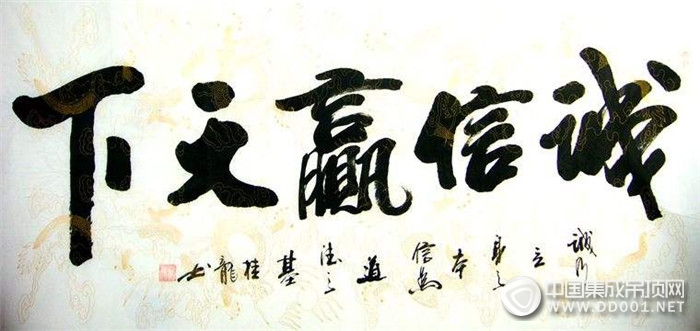 誠信贏天下
誠乃立身之本信為道德之基桂龍书
中国集成吊顶网
WWW.OD001.NET